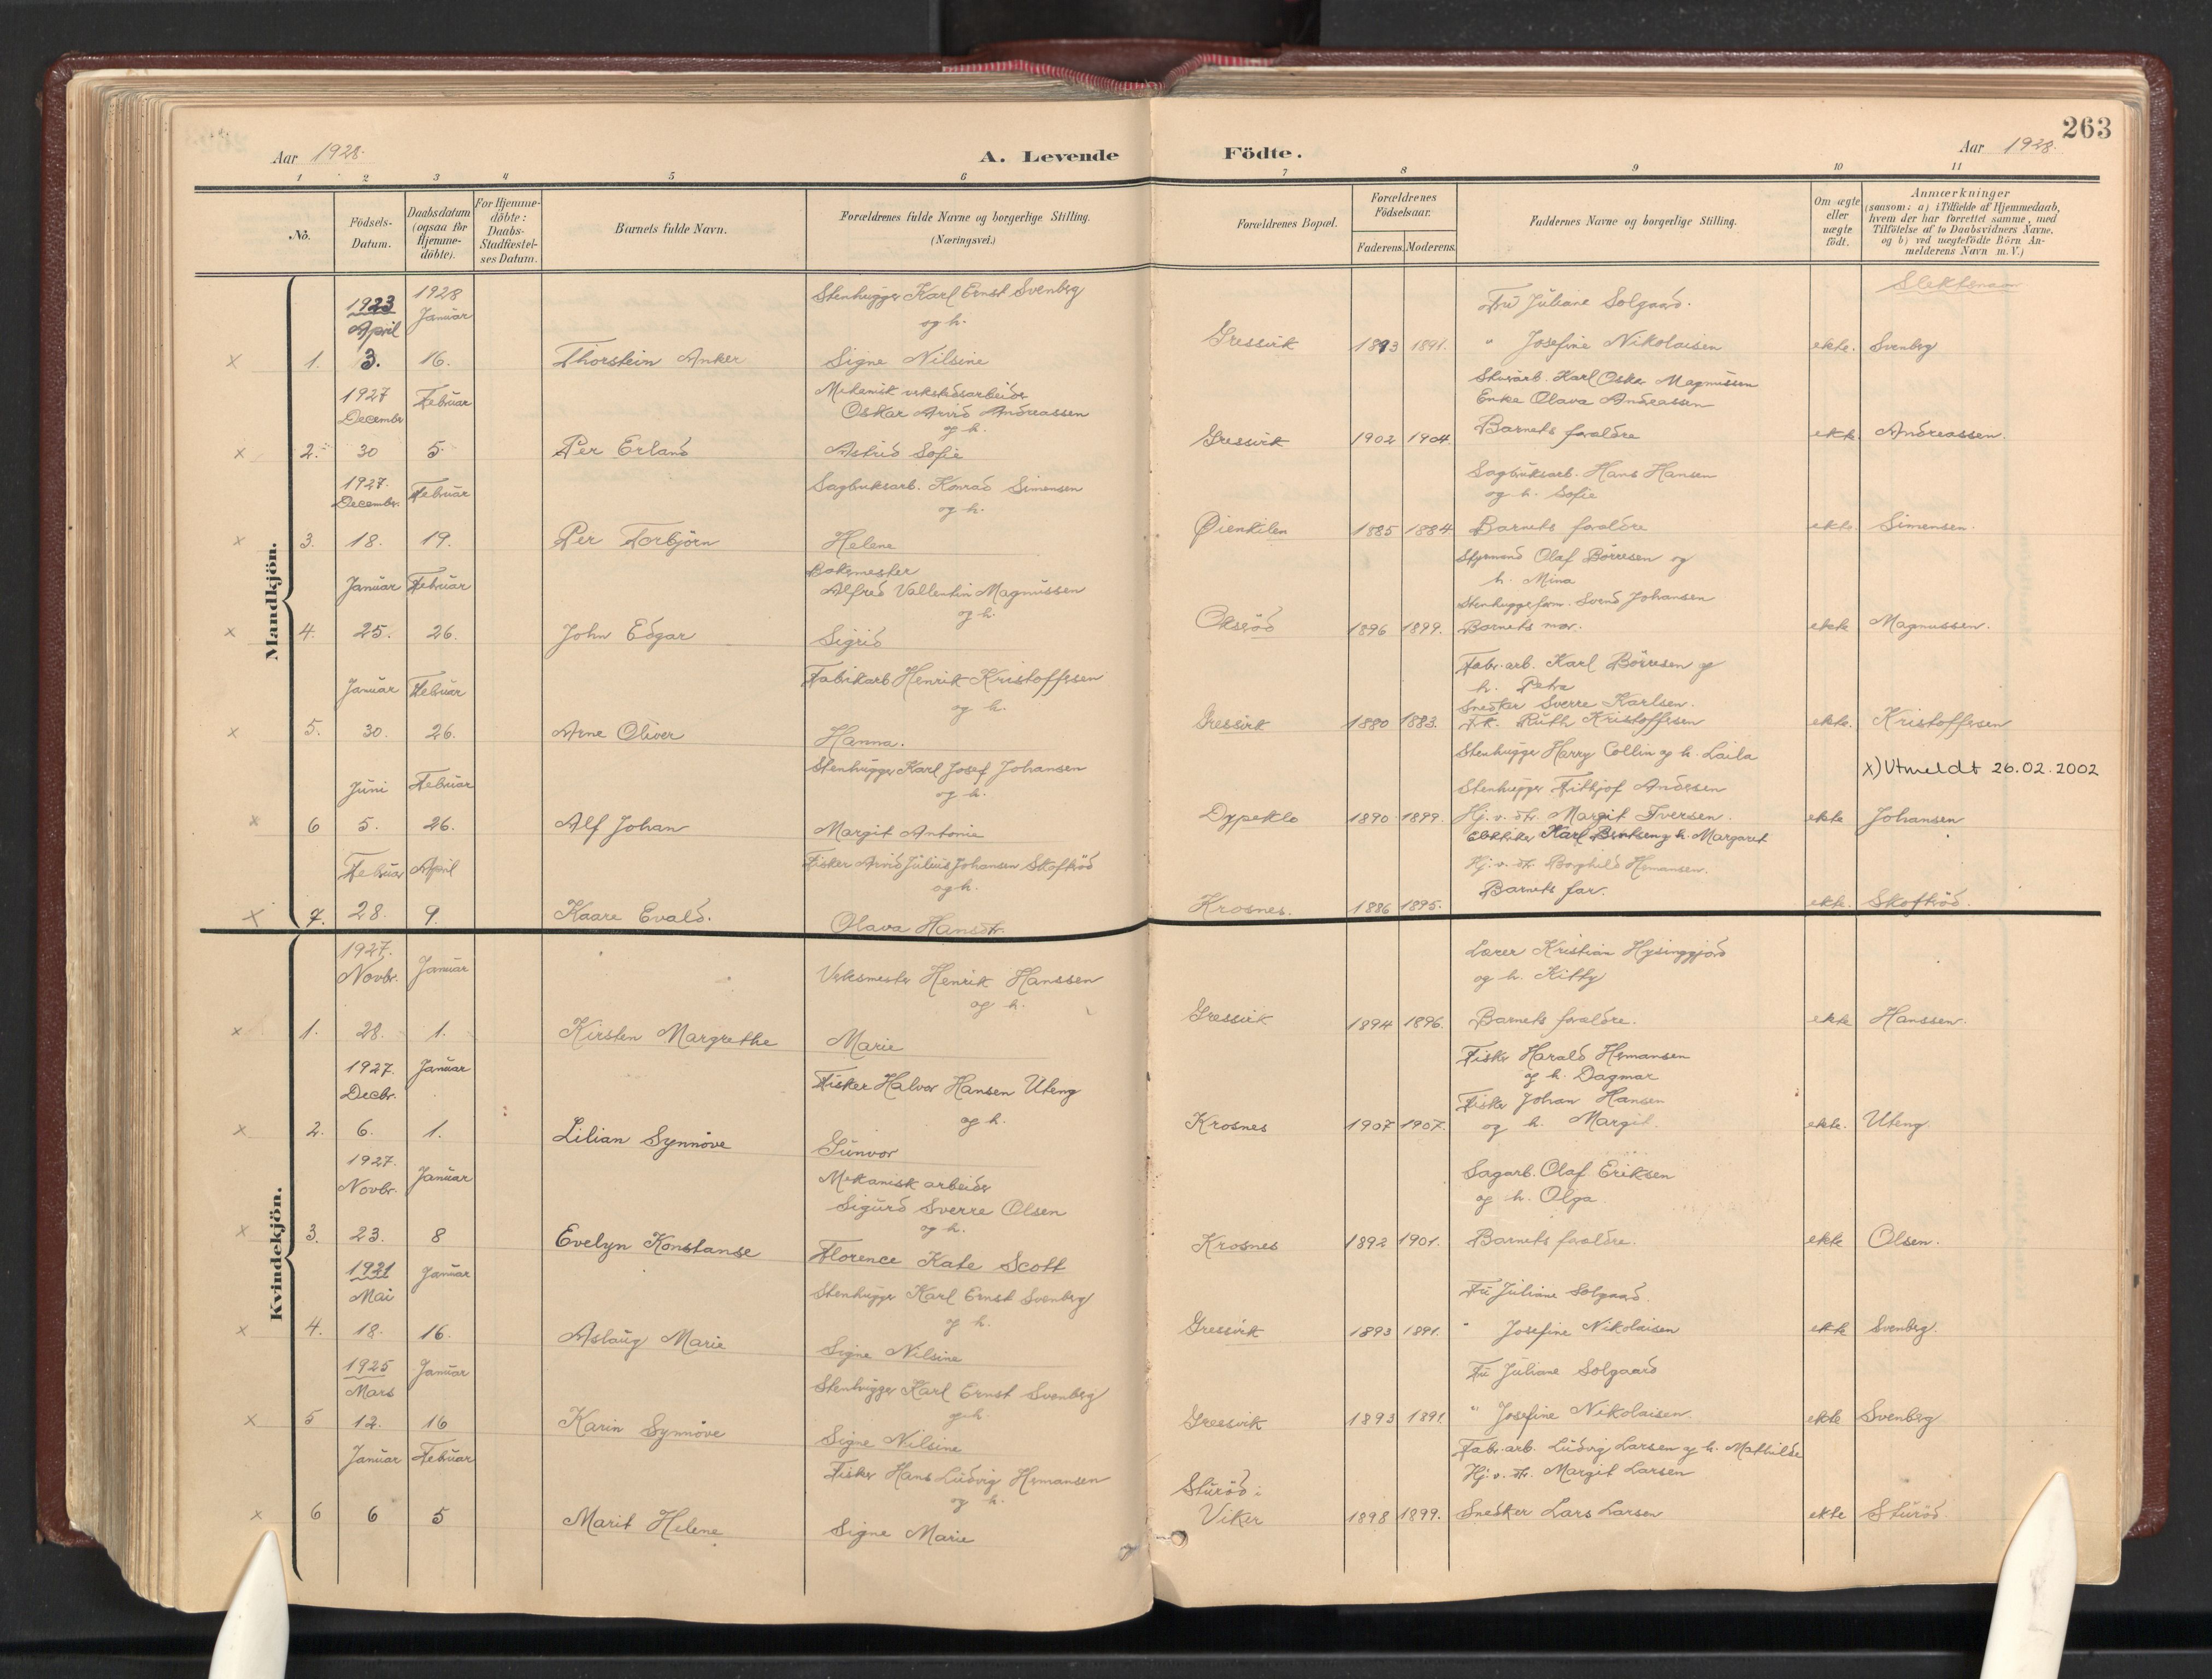 263
Aar 1928.
A. Levende Födte.
Aar 1928.
1 2 3 4 5 6 7 8 9 10 11
No.
Födsels-Datum.
Daabsdatum (ogsaa for Hjemme-döbte).
For Hjemme-döbte: Daabs-Stadfæstel-ses Datum.
Barnets fulde Navn.
Forældrenes fulde Navne og borgerlige Stilling. (Næringsvei.)
Forældrenes Bopæl.
Forældrenes Födselsaar.
Faderens. Moderens.
Faddernes Navne og borgerlige Stilling.
Om ægte eller uægte födt.
Anmærkninger
(saasom: a) i Tilfælde af Hjemmedaab,
hvem der har forrettet samme, med
Tilföielse af to Daabsvidners Navne,
og b) ved uægtefödte Börn An-
melderens Navn m. V.)
Slektsnavn
Mandkjön.
1923 1928 Stenhugger Karl Ernst Svenberg Fru Juliane Solgaard.
April Januar og h.
x 1. 3. 16. Thorstein Anker Signe Nilsine Gressvik 1893 1891. " Josefine Nikolaisen ekte. Svenberg
1927 Februar Mekanisk verkstedsarbeider Skoarb. Karl Oskar Magnussen
Decembr Oskar Arvid Andreassen Enke Olava Andreassen
og h.
x 2. 30 5. Per Erland Astrid Sofie Gressvik 1902 1904. Barnets forældre ekte. Andreassen.
1927. Februar Sagbruksarb. Konrad Simensen Sagbruksarb. Hans Hansen
Decembr. og h. og h. Sofie
x 3. 18. 19. Per Torbjörn Helene Øienkilen 1885 1884 Barnets forældre ekte. Simensen.
Bakermester Styrmand Olaf Börresen og
Januar Februar Alfred Vallentin Magnussen h. Mina
og h. Stenhuggerform. Svend Johansen
x 4. 25. 26. John Edgar Sigrid Oksröd 1896 1899. Barnets mor. ekte Magnussen.
Fabrikarb Henrik Kristoffersen Fabr.arb. Karl Börresen og
Januar Februar og h. h. Petra
Snedker Sverre Karlsen.
x 5. 30. 26. Arne Oliver Hanna. Gressvik 1880 1883. Frk. Ruth Kristoffersen ekte. Kristoffersen
Stenhugger Karl Josef Johansen Stenhugger Harry Collin og h. Laila
x) Utmeldt 26.02.2002
Juni Februar og h. Stenhugger Fithjof Andersen
x 6 5. 26. Alf Johan Margit Antonie Dypeklo 1890 1899. Hj. v. dtr. Margit Iversen. ekte Johansen
Elektriker Karl Berntsen og h. Margaret
Februar April Fisker Arvid Julius Johansen Skofteröd Hj. v. dtr. Borghild Hermansen.
og h.
x 7. 28. 9. Kaare Evald. Olava Hansdtr. Krosnes. 1886 1895. Barnets far. ekte. Skofteröd.
Kvindekjön.
1927. Lærer Kristian Hysinggjord
Novbr. Januar Verksmester Henrik Hanssen og h. Kitty
og h.
x 1. 28. 1. Kirsten Margrethe Marie Gressvik 1894 1896. Barnets forældre. ekte Hanssen.
1927. Januar Fisker Halvor Hansen Uteng Fisker Harald Hermansen
Decbr. og h. og h. Dagmar
Fisker Johan Hansen
x 2. 6. 1. Lilian Synnöve Gunvor Krosnes 1907 1907. og h. Margit. ekte. Uteng
1927. Januar Mekanisk arbeider Sagarb. Olaf Eriksen
Novbr. Sigurd Sverre Olsen og h. Olga
og h.
x 3. 23. 8 Evelyn Konstanse Florence Kate Scott Krosnes 1892 1901. Barnets forældre. ekte Olsen.
1921 Januar Stenhugger Karl Ernst Svenberg Fru Juliane Solgaard.
Mai og h.
x 4. 18. 16. Aslaug Marie Signe Nilsine Gressvik 1893 1891. " Josefine Nikolaisen ekte Svenberg.
1925 Januar Stenhugger Karl Ernst Svenberg Fru Juliane Solgaard
Mars og h.
x 5 12. 16 Karin Synnöve Signe Nilsine Gressvik 1893 1891 " Josefine Nikolaisen. ekte Svenberg
Januar Februar Fisker Hans Ludvig Hermansen Fabr.arb. Ludvig Larsen og h. Mathilde
og h. Sturöd i Hj. v. dtr. Margit Larsen
x 6 6 5 Marit Helene Signe Marie Viker 1898 1899. Snedker Lars Larsen ekte Sturöd.